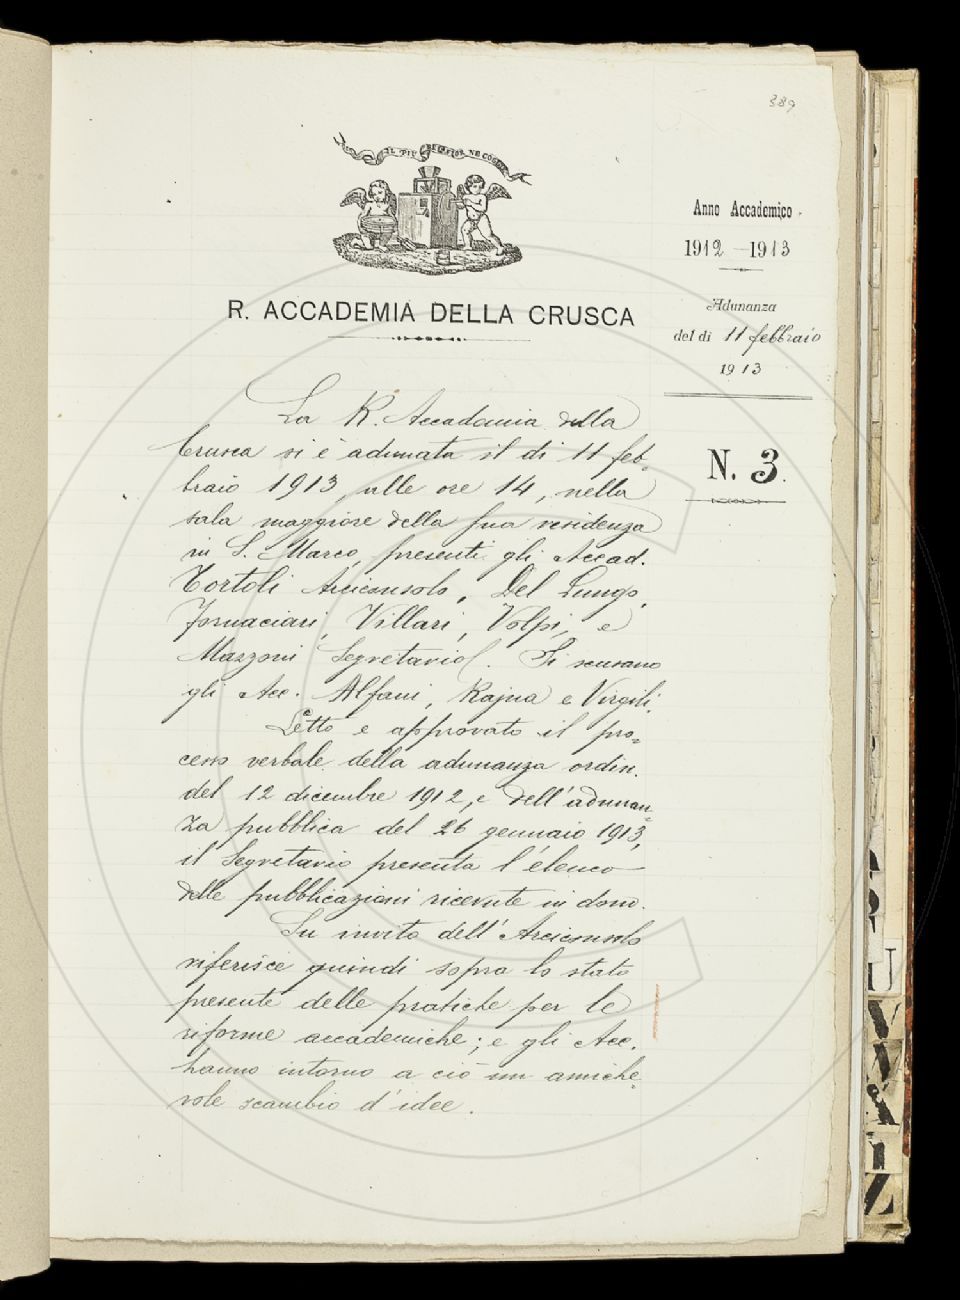 389
IL PIÙ BEL FIOR NE COGLIE
Anno Accademico
1912-1913
Adunanza
del dì 11 febbraio
1913
R. ACCADEMIA DELLA CRUSCA
N. 3.
La R. Accademia della
Crusca si è adunata il dì 11 feb-
braio 1913, alle ore 14, nella
sala maggiore della sua residenza
in S. Marco, presenti gli Accad.
Tortoli Arciconsolo, Del Lungo,
Fornaciari, Villari, Volpi, e
Mazzoni Segretario. Si scusano
gli Acc. Alfani, Rajna e Virgili.
Letto e approvato il pro-
cesso verbale della adunanza ordin.
del 12 dicembre 1912, e dell'adunan-
za pubblica del 26 gennaio 1913,
il Segretario presenta l'elenco
delle pubblicazioni ricevute in dono.
Su invito dell'Arciconsolo
riferisce quindi sopra lo stato
presente delle pratiche per le
riforme accademiche; e gli Acc.
hanno intorno a ciò un amiche-
vole scambio d'idee.